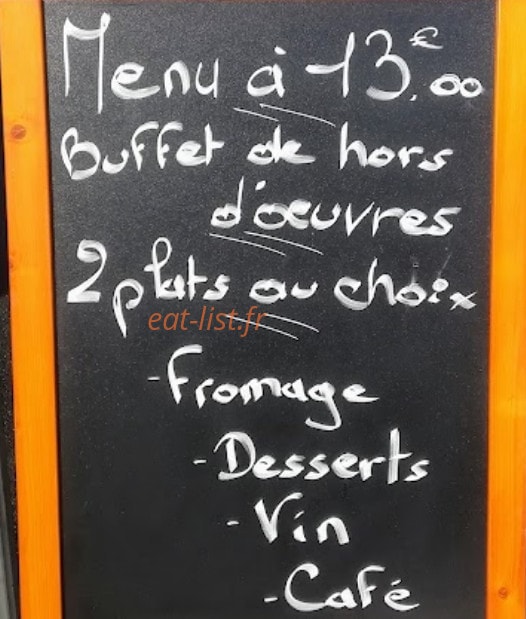 Menu à 13,00 €
Buffet de hors
d'œuvres
2 plats au choix
eat-list.fr
- Fromage
- Desserts
- Vin
- Café